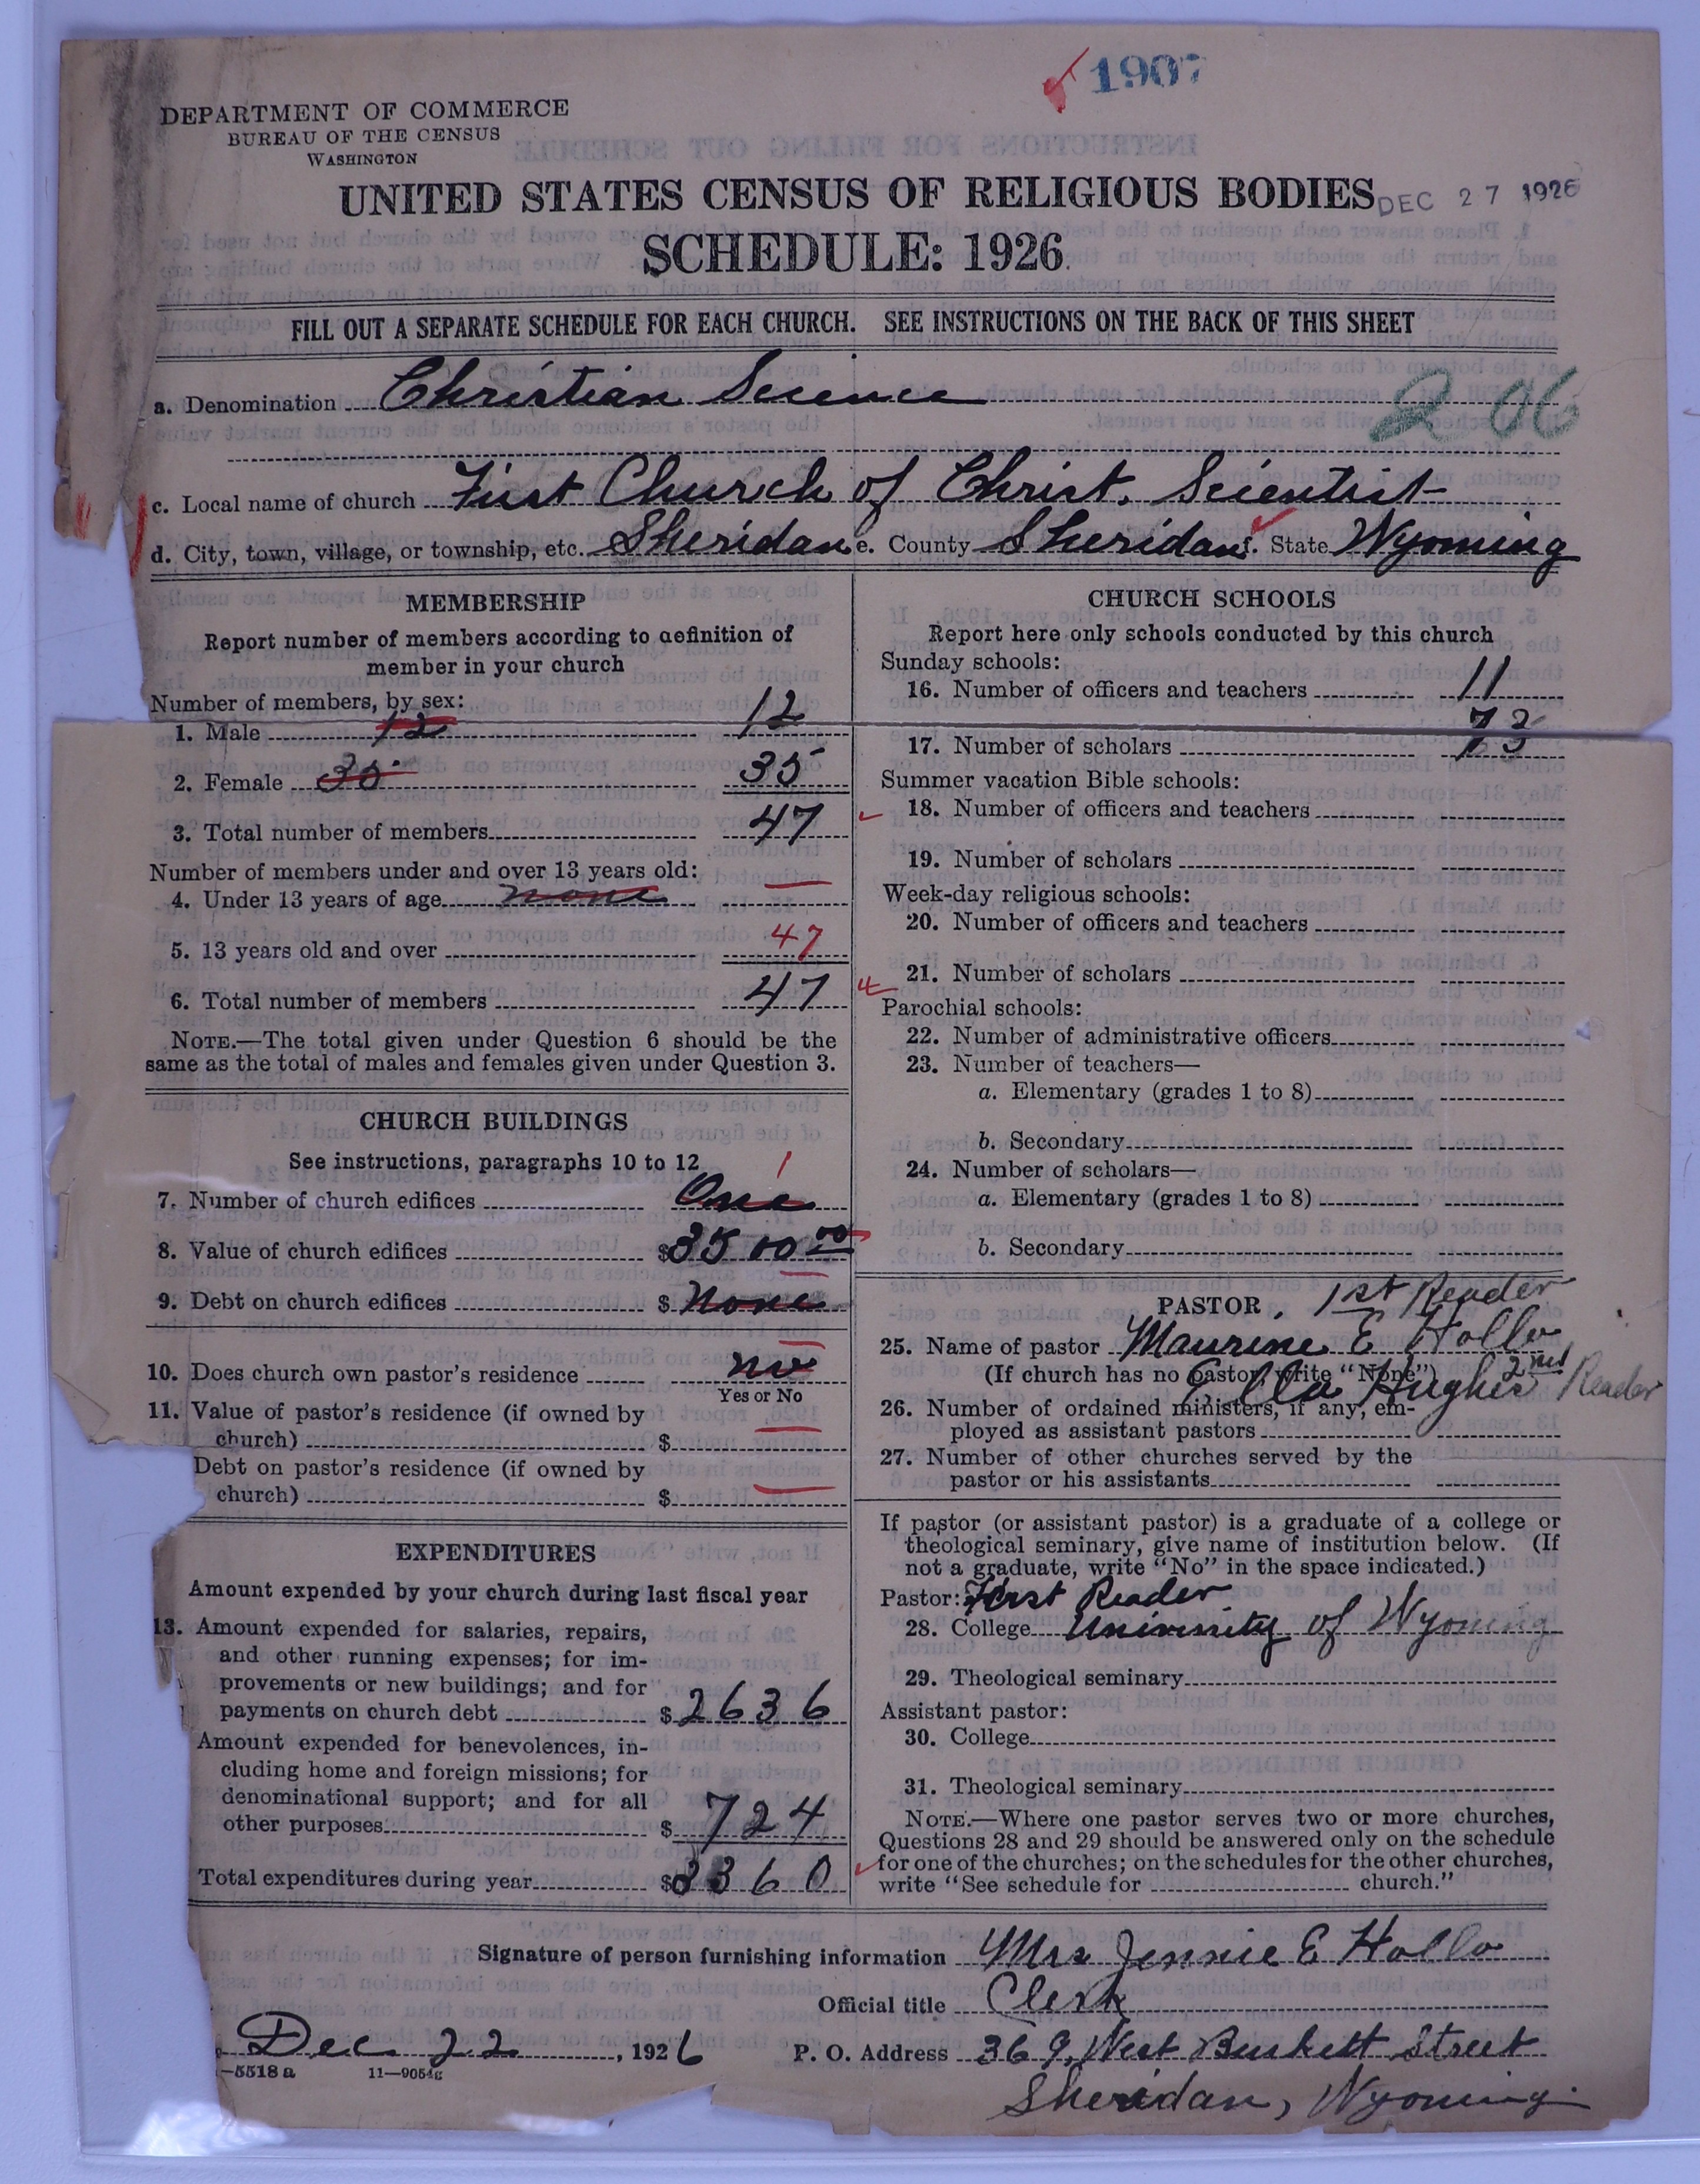 1907
DEPARTMENT OF COMMERCE
BUREAU OF THE CENSUS
WASHINGTON
UNITED STATES CENSUS OF RELIGIOUS BODIES
DEC 27 1926
SCHEDULE: 1926
FILL OUT A SEPARATE SCHEDULE FOR EACH CHURCH. SEE INSTRUCTIONS ON THE BACK OF THIS SHEET
a. Denomination Christian Science
206
c. Local name of church First Church of Christ, Scientist
d. City, town, village, or township, etc. Sheridan e. County Sheridan f. State Wyoming
MEMBERSHIP
Report number of members according to definition of
member in your church
Number of members, by sex:
1. Male 12 12
2. Female 35 35
3. Total number of members 47
Number of members under and over 13 years old:
4. Under 13 years of age none —
5. 13 years old and over 47
6. Total number of members 47
NOTE.—The total given under Question 6 should be the
same as the total of males and females given under Question 3.
CHURCH BUILDINGS
See instructions, paragraphs 10 to 12
1
7. Number of church edifices One
8. Value of church edifices $3500 00
9. Debt on church edifices $ None
10. Does church own pastor's residence no
Yes or No
11. Value of pastor's residence (if owned by
church) $
Debt on pastor's residence (if owned by
church) $
EXPENDITURES
Amount expended by your church during last fiscal year
13. Amount expended for salaries, repairs,
and other running expenses; for im-
provements or new buildings; and for
payments on church debt $2636
Amount expended for benevolences, in-
cluding home and foreign missions; for
denominational support; and for all
other purposes $ 724
Total expenditures during year $3360
CHURCH SCHOOLS
Report here only schools conducted by this church
Sunday schools:
16. Number of officers and teachers 11
17. Number of scholars 73
Summer vacation Bible schools:
18. Number of officers and teachers
19. Number of scholars
Week-day religious schools:
20. Number of officers and teachers
21. Number of scholars
Parochial schools:
22. Number of administrative officers
23. Number of teachers—
a. Elementary (grades 1 to 8)
b. Secondary
24. Number of scholars—
a. Elementary (grades 1 to 8)
b. Secondary
PASTOR, 1st Reader
25. Name of pastor Maurine E Hollo
(If church has no pastor, write "None")
Ella Hughes 2nd Reader
26. Number of ordained ministers, if any, em-
ployed as assistant pastors
27. Number of other churches served by the
pastor or his assistants
If pastor (or assistant pastor) is a graduate of a college or
theological seminary, give name of institution below. (If
not a graduate, write "No" in the space indicated.)
Pastor: First Reader
28. College University of Wyoming
29. Theological seminary
Assistant pastor:
30. College
31. Theological seminary
NOTE.—Where one pastor serves two or more churches,
Questions 28 and 29 should be answered only on the schedule
for one of the churches; on the schedules for the other churches,
write "See schedule for church."
Signature of person furnishing information Mrs Jennie E Hollo
Official title Clerk
Dec 22, 1926 P. O. Address 369 West Burkett Street
—5518 a 11—9054
Sheridan, Wyoming.